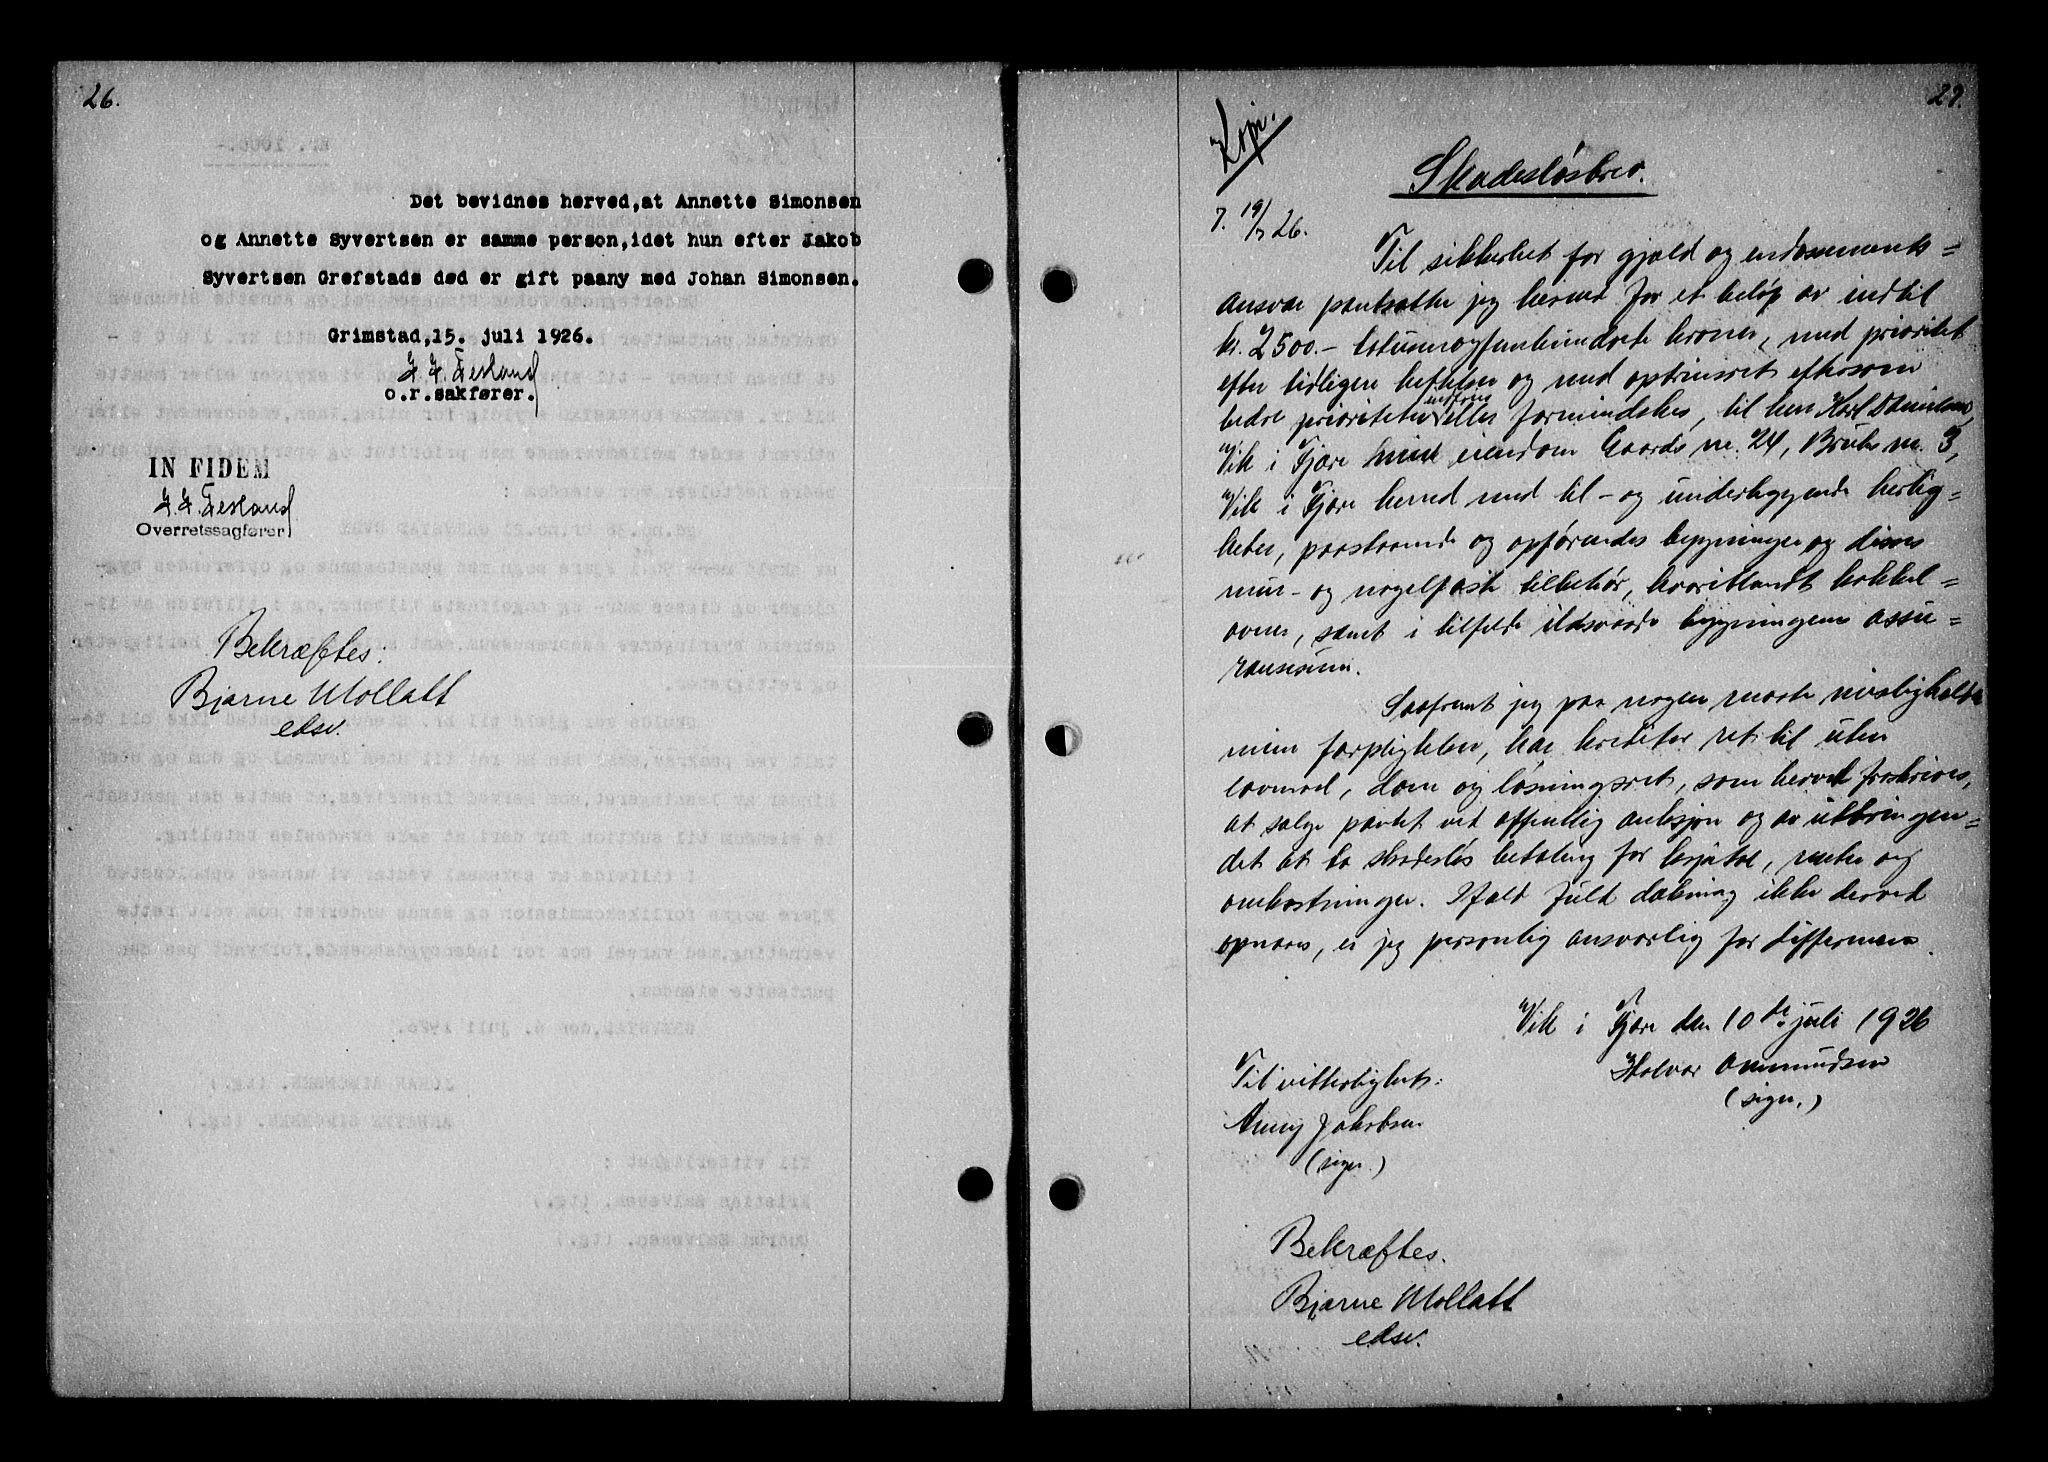 26.
Det bevidnes herved, at Annette Simonsen
og Annette Syvertsen er samme person, idet hun efter Jakob
Syvertsen Grefstads død er gift paany med Johan Simonsen.
Grimstad, 15. juli 1926.
o.r.sakfører.
IN FIDEM
Overretssagfører
Bekræftes:
Bjarne Mollatt
edsv.
27.
Kopi.
Skadesløsbrev.
7. 19/7 26.
Til sikkerhet for gjæld og endossements=
ansvar pantsætter jeg herved for et beløp av indtil
kr. 2500.- totusenogfemhundrede kroner, med prioritet
efter tidligere heftelser og med optrinsret eftersom
bedre prioriteter indfries eller formindskes, til herr Karl Danielsen,
Vik i Fjære min eiendom Gaards nr. 24, Bruks nr. 3,
Vik i Fjære herred med til- og underliggende herlig=
heter, paastaaende og opførendes bygninger og disses
mur- og nagelfaste tilbehør, hvoriblandt kakkel=
ovner, samt i tilfælde ildsvaade bygningens assu=
ransesum.
Saafremt jeg paa nogen maate misligholder
mine forpligtelser, har kreditor ret til uten
lovmaal, dom og løsningsret, som herved fraskrives,
at sælge pantet ved offentlig auksjon og av utbringen=
det at ta skadesløs betaling for kapital, renter og
omkostninger. Ifald fuld dækning ikke derved
opnaaes, er jeg personlig ansvarlig for differansen.
Vik i Fjære den 10de juli 1926
Halvor Ommundsen
(sign.)
Til vitterlighet:
Anny Jakobsen
(sign.)
Bekræftes.
Bjarne Mollatt
edsv.